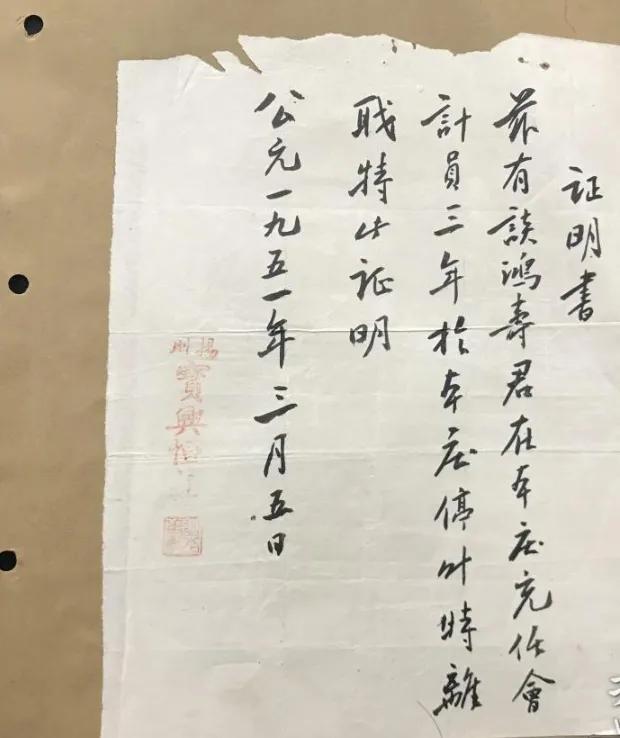 证明书
兹有談鴻壽君在本庄充任會
計員三年於本庄停业時離
职特此证明
公元一九五一年三月五日
揚州
寳興恒